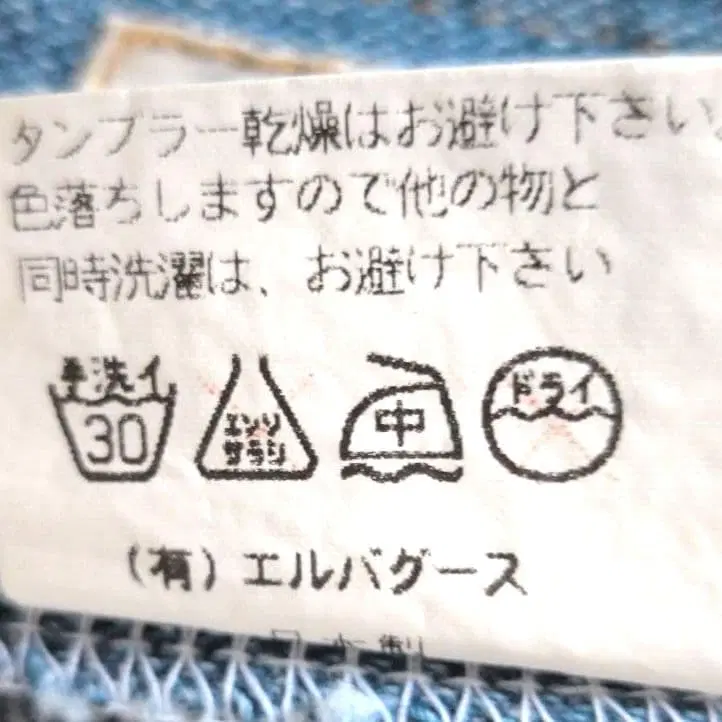 タンブラー乾燥はお避け下さい
色落ちしますので他の物と
同時洗濯は、お避け下さい
手洗イ 30
エンソ サラシ
中
ドライ
(有)エルバグース
日本製